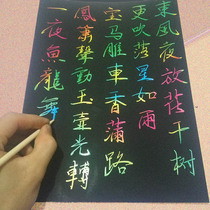 東風夜放花千樹
更吹落星如雨
宝马雕車香滿路
鳳簫聲動玉壺光轉
一夜魚龍舞